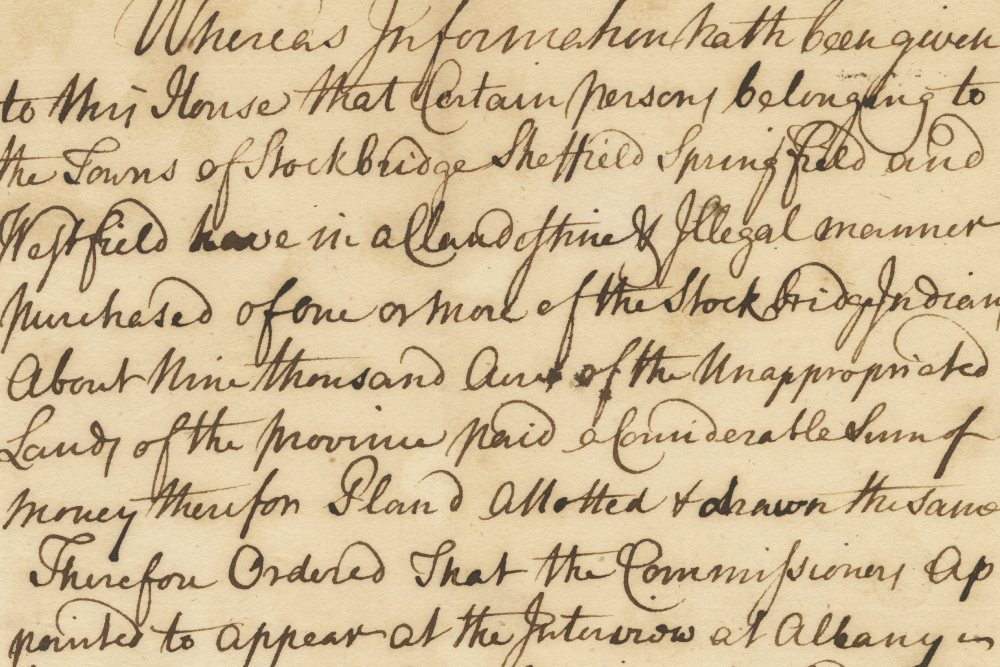 Whereas Information hath been given
to this House that Certain persons belonging to
the Towns of Stockbridge Sheffield Springfield and
Westfield have in a Clandestine & Illegal manner
purchased of one or more of the Stockbridge Indians
About Nine thousand Acres of the Unappropriated
Lands of the province paid a Considerable Sum of
money therefor Pland Allotted & drawn the same
Therefore Ordered That the Commissioners Ap
pointed to appear at the Interview at Albany in